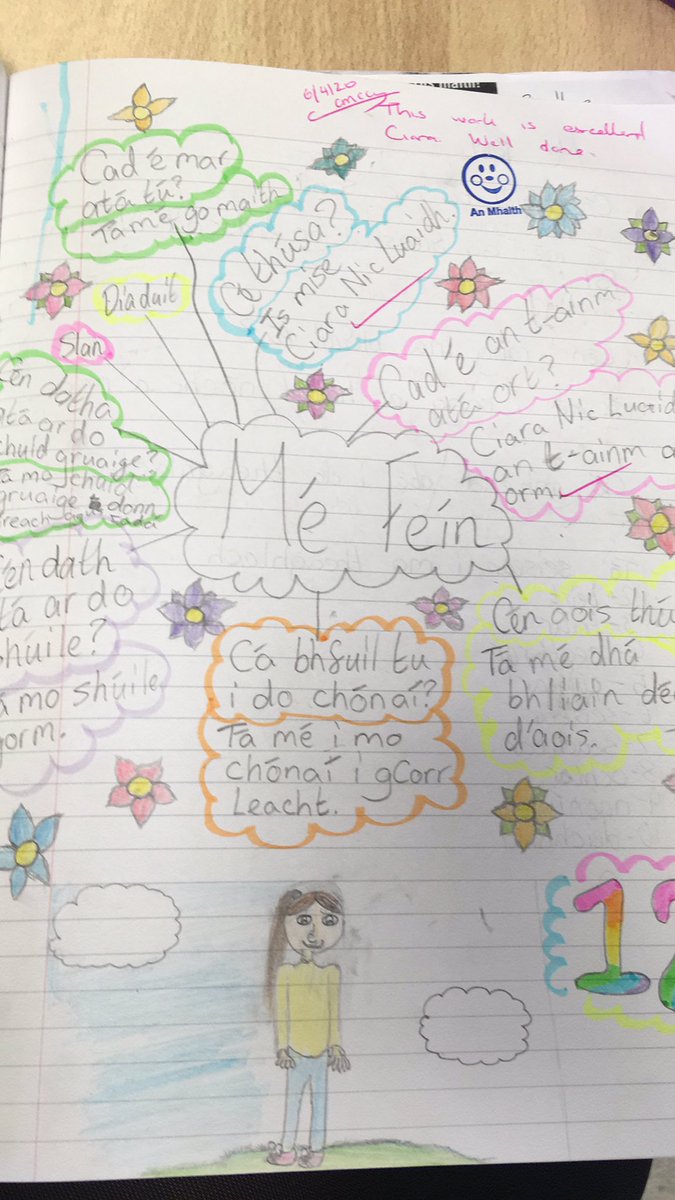 6/4/20
This work is excellent
Ciara Well done.
An Mhaith
Cad é mar
atá tú?
Tá mé go maith
Cé thúsa?
Is mise
Ciara Nic Luaidh.
Dia duit
Slan
Cad'é an t-ainm
atá ort?
Ciara Nic Luaid
an t-ainm a
orm.
Cén datha
atá ar do
chuid gruaige?
Tá mo chuid
gruaige donn
Mé Féin
Cén dath
tá ar do
shúile?
á mo shúile
gorm.
Cá bhfuil tu
i do chónaí?
Tá mé i mo
chónaí i gCorr
Leacht.
Cén aois thú
Tá mé dhá
bhliain dé
d'aois.
12